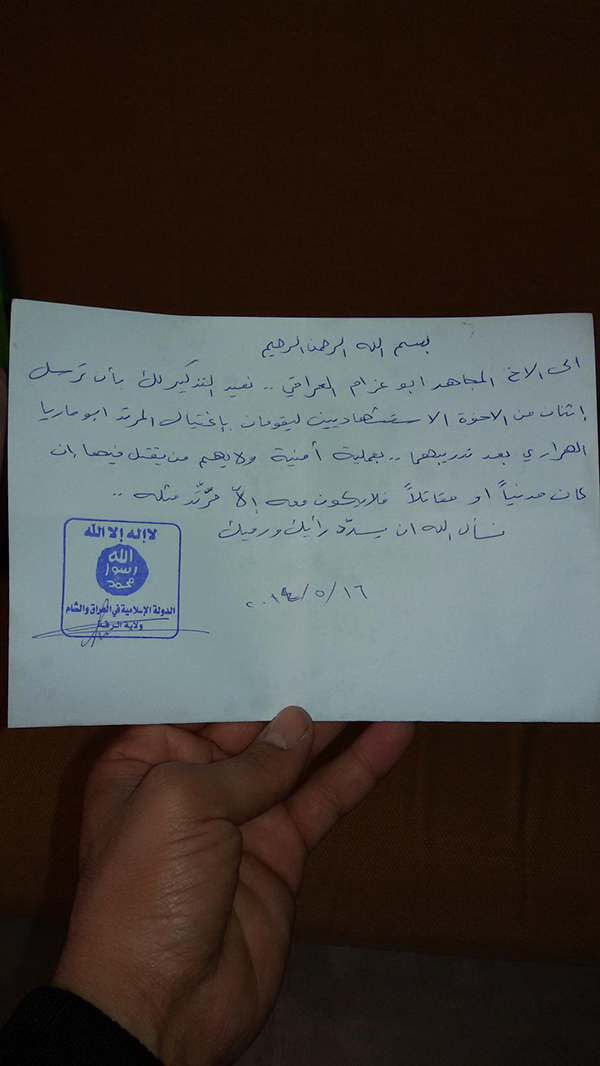 بسم الله الرحمن الرحيم
الى الاخ المجاهد ابو عزام العراقي .. نعيد التذكير لك بأن ترسل
إثنان من الاخوة الاستشهاديين ليقومان بإغتيال المرتد ابو ماريا
الهراري بعد تدريبهما .. بعملية أمنية ولا يهم من يقتل فيها إن
كان مدنياً او مقاتلاً فلا يكون معه إلاّ مرتّد مثله ..
نسأل الله ان يسدّد رأيك ورميك
٢٠١٤/٥/١٦
لا إله إلا الله
الله
رسول
محمد
الدولة الإسلامية في العراق والشام
ولاية الرقة